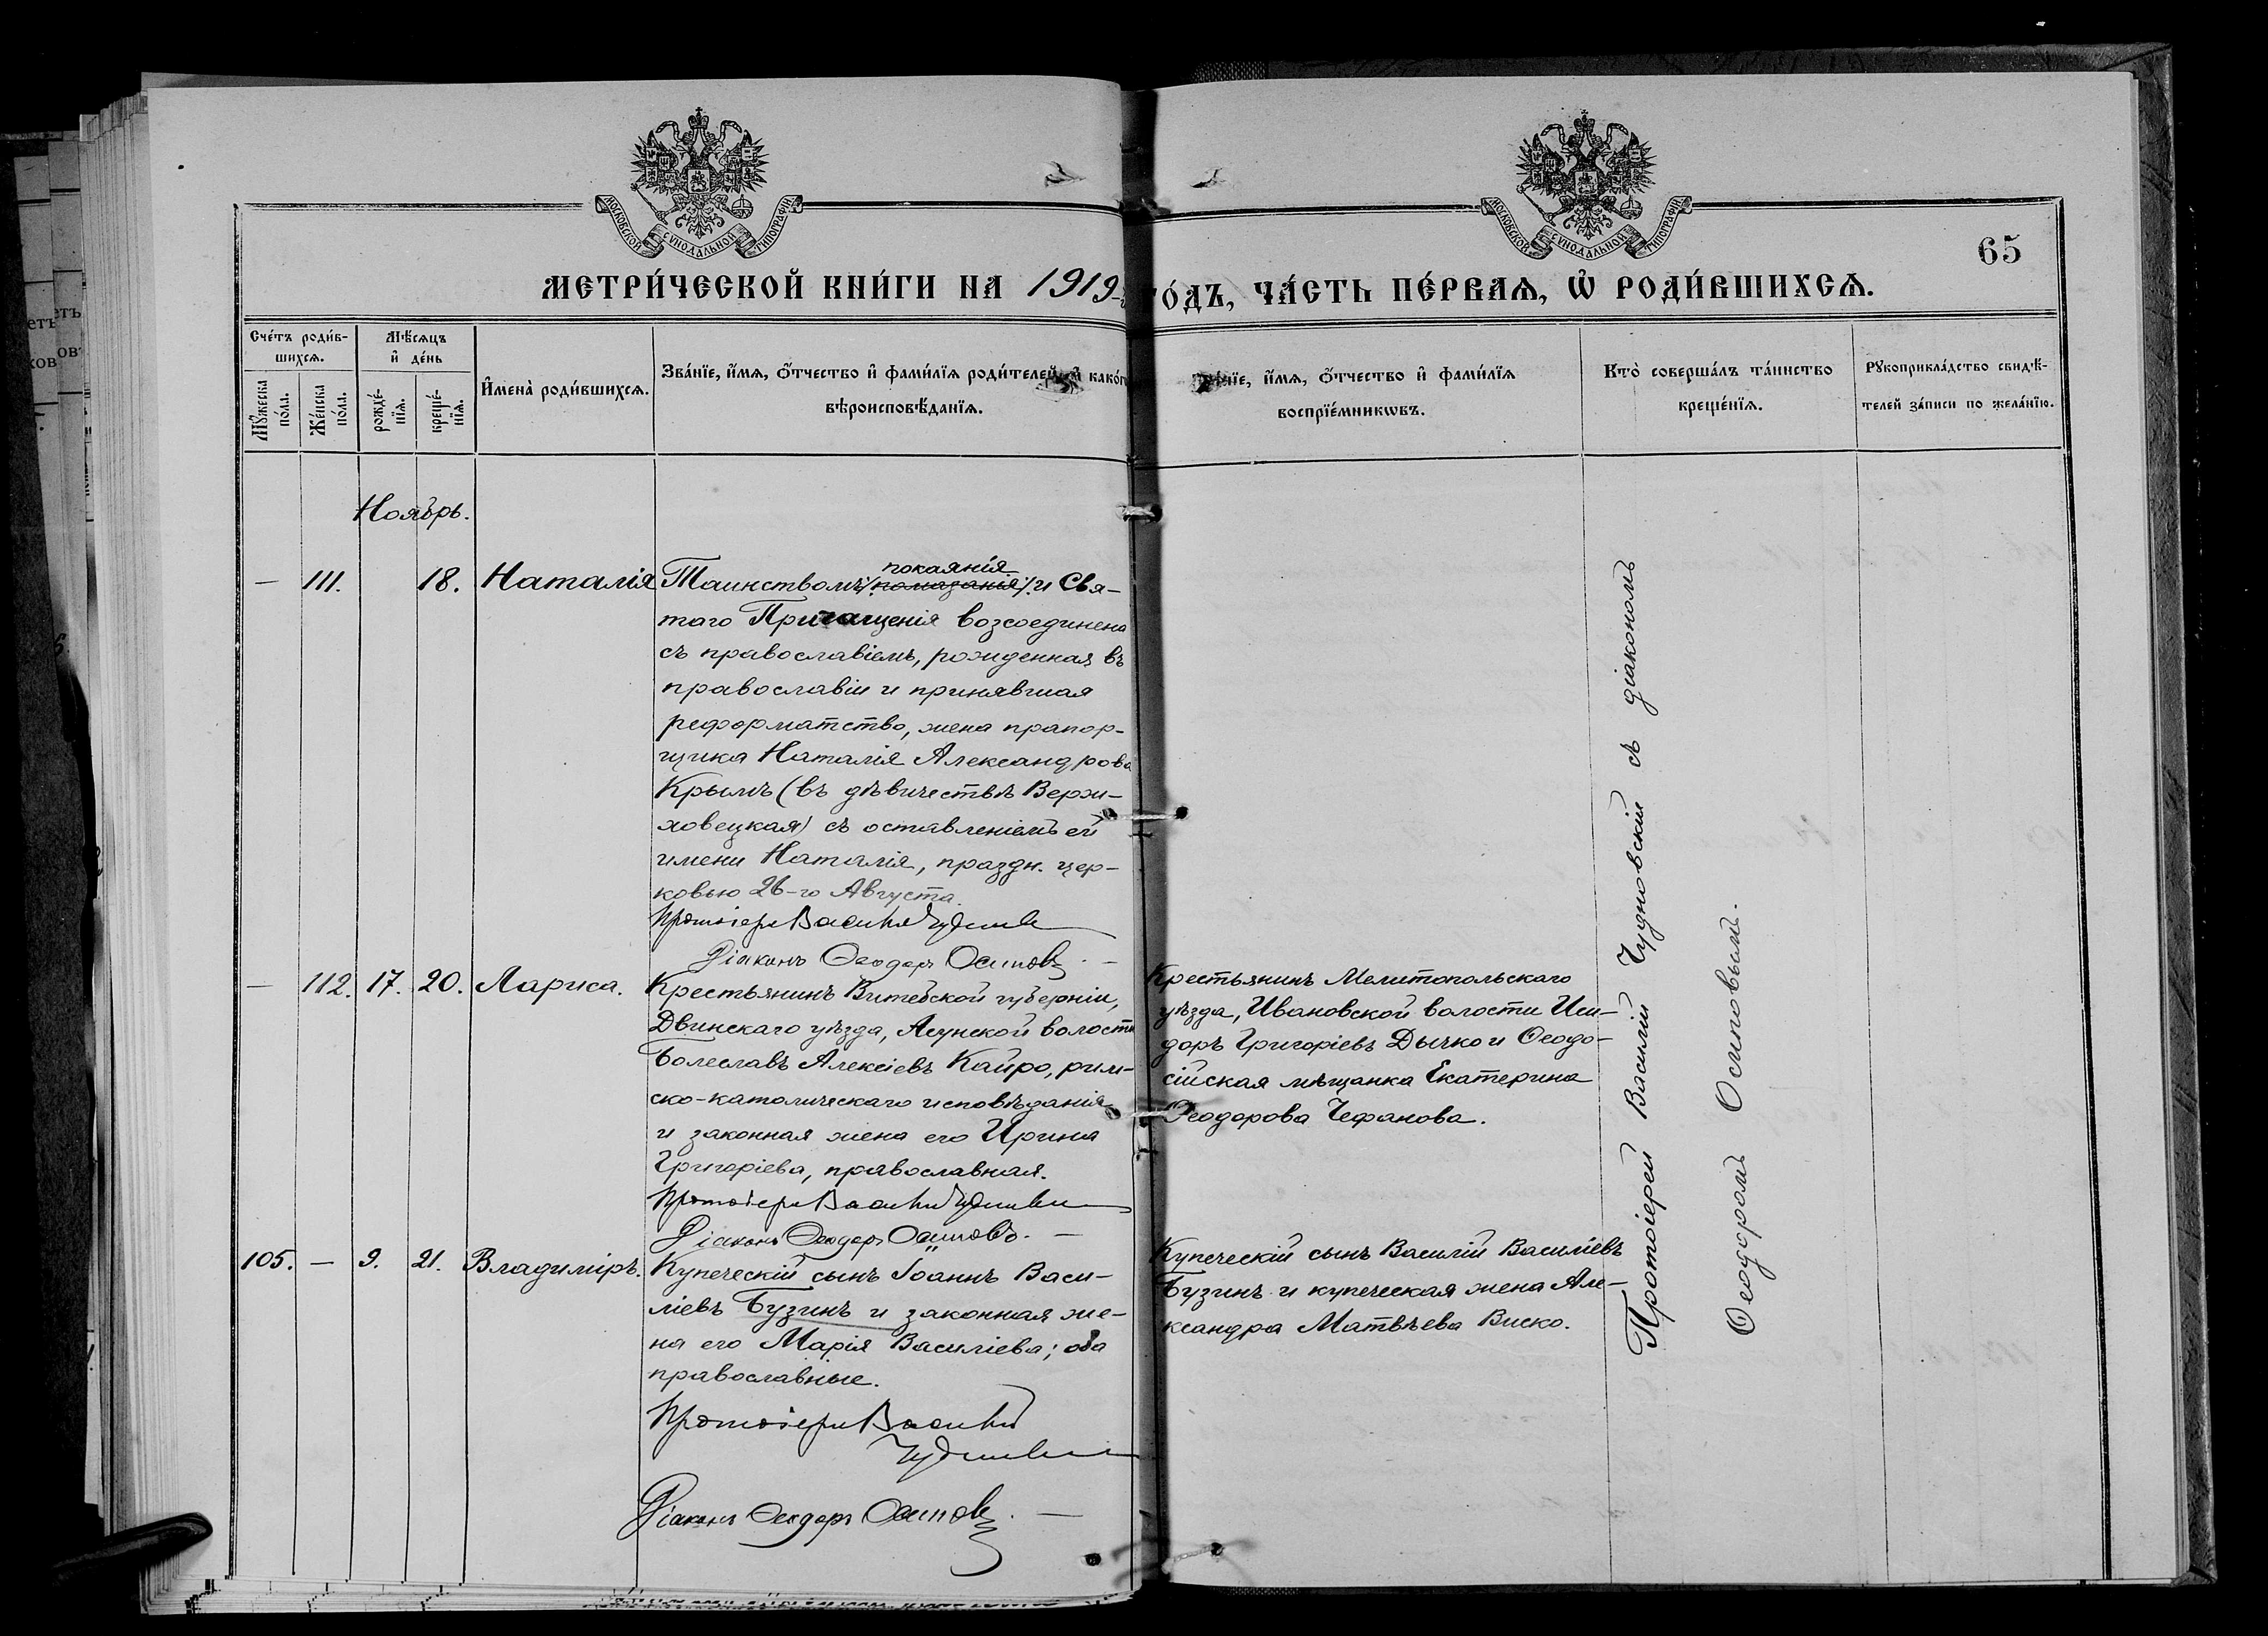 МОСКОВСКОЙ СѴНОДАЛЬНОЙ ТИПОГРАФІИ
МОСКОВСКОЙ СѴНОДАЛЬНОЙ ТИПОГРАФІИ
65
МЕТРИ́ЧЕСКОЙ КНИ́ГИ НА 1919-й
ГО́ДЪ, ЧА́СТЬ ПЕ́РВАѦ, Ѡ҆ РОДИ́ВШИХСѦ.
Сче́тъ роди́в-
шихсѧ.
Мѹ́жеска
по́ла.
Же́нска
по́ла.
Мѣ́сѧцъ
и҆ де́нь
рожде́-
нїѧ.
креще́-
нїѧ.
И҆мена̀ роди́вшихсѧ.
Зва́нїе, и҆́мѧ, ѻ҆́тчество и҆ фами́лїѧ роди́телей, и҆ како́гѡ
вѣроисповѣ́данїѧ.
Зва́нїе, и҆́мѧ, ѻ҆́тчество и҆ фами́лїѧ
воспрїе́мникѡвъ.
Кто̀ соверша́лъ та́инство
креще́нїѧ.
Рѹкоприкла́дство свидѣ́-
телей за́писи по жела́нїю.
Ноябрь.
— 111. 18. Наталія
покаянія
Таинствомъ /помазанія/ и Свя-
таго Причащенія возсоединена
съ православіемъ, рожденная въ
православіи и принявшая
реформатство, жена прапор-
щика Наталія Александрова
Крымъ (въ дѣвичествѣ Вержи-
ховецкая) съ оставленіемъ ей
имени Наталія, праздн. цер-
ковью 26-го Августа.
Протоіерей Василій Чудновскій
Діаконъ Ѳеодоръ Осиповъ. —
— 112. 17. 20. Лариса.
Крестьянинъ Витебской губерніи,
Двинскаго уѣзда, Асунской волости
Болеславъ Алексіевъ Кайро, рим-
ско-католическаго исповѣданія
и законная жена его Ирина
Григоріева, православная.
Протоіерей Василій Чудновскій
Діаконъ Ѳеодоръ Осиповъ. —
Крестьянинъ Мелитопольскаго
уѣзда, Ивановской волости Иси-
доръ Григоріевъ Дычко и Ѳеодо-
сійская мѣщанка Екатерина
Ѳеодорова Чефанова.
105. — 9. 21. Владиміръ.
Купеческій сынъ Іоаннъ Васи-
ліевъ Бузинъ и законная же-
на его Марія Василіева; оба
православные.
Протоіерей Василій
Чудновскій
Діаконъ Ѳеодоръ Осиповъ. —
Купеческій сынъ Василій Василіевъ
Бузинъ и купеческая жена Але-
ксандра Матвѣева Виско.
Протоіерей Василій Чудновскій съ діакономъ
Ѳеодоромъ Осиповымъ.